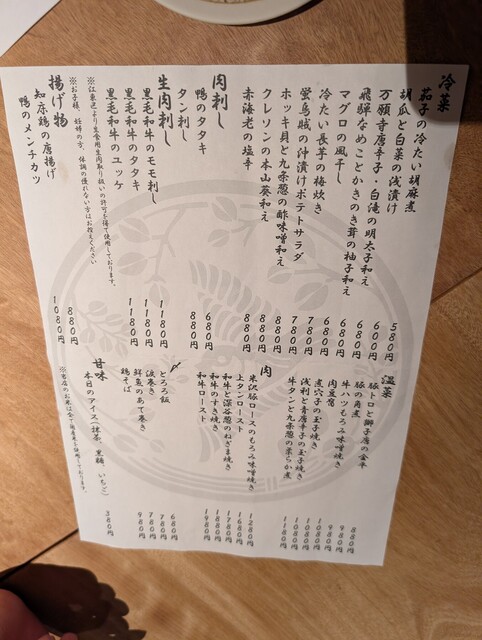 冷菜
茄子の冷たい胡麻煮 580円
胡瓜と白菜の浅漬け 600円
万願寺唐辛子・白滝の明太子和え 680円
飛騨なめことかきのき茸の柚子和え 680円
マグロの風干し 680円
冷たい長芋の梅炊き 780円
蛍烏賊の沖漬けポテトサラダ 780円
ホッキ貝と九条葱の酢味噌和え 880円
クレソンの本山葵和え 880円
赤海老の塩辛 880円
肉刺し
鴨のタタキ 680円
タン刺し 880円
生肉刺し
黒毛和牛のモモ刺し 1180円
黒毛和牛のタタキ 1180円
黒毛和牛のユッケ 1180円
※江東区より生食用生肉取り扱いの許可を得て使用しております。
※お子様、妊婦の方、体調の優れない方はお控えください
揚げ物
知床鶏の唐揚げ 880円
鴨のメンチカツ 1080円
温菜
豚トロと獅子唐の金平 880円
豚の角煮 980円
牛ハツもろみ味噌焼き 980円
肉豆腐 1080円
煮穴子の玉子焼き 1080円
浅利と青唐辛子の玉子焼き 1080円
牛タンと九条葱の柔らか煮 1180円
肉
米沢豚ロースのもろみ味噌焼き 1280円
上タンロースト 1680円
和牛と深谷葱のねぎま焼き 1780円
和牛のすき焼き 1880円
和牛ロースト 1980円
〆
とろろ飯 680円
波巻き 780円
鮮魚のあて巻き 780円
鶏そば 980円
甘味
本日のアイス(抹茶、黒糖、いちご) 380円
※当店のお米は全て国産米を使用しております。